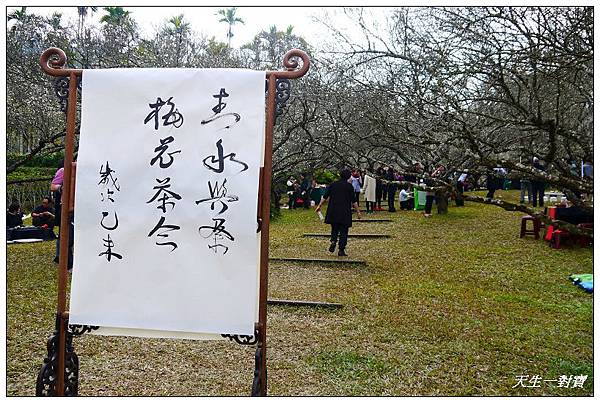 志水與參
梅花茶會
歲次乙未
天生一對寶